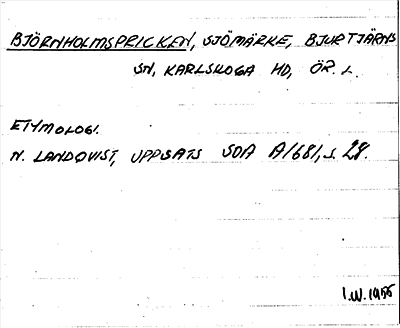 BJÖRNHOLMSPRICKEN, SJÖMÄRKE, BJURTJÄRNS
SN, KARLSKOGA HD, ÖR. L.
ETYMOLOGI.
N. LANDQVIST, UPPSATS SOA A1681, s. 28.
I.W. 1955